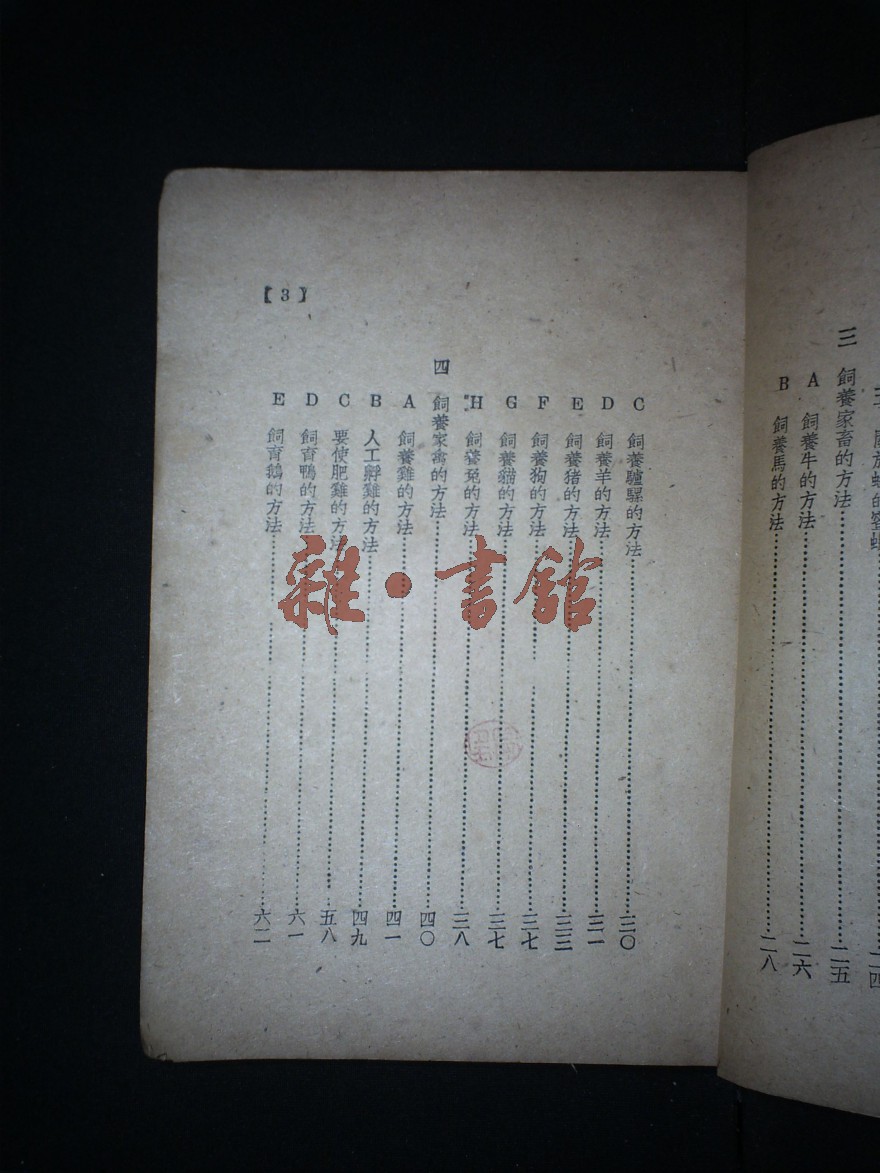 三 飼養家畜的方法……二五
A 飼養牛的方法……二六
B 飼養馬的方法……二八
【3】
C 飼養驢騾的方法……三〇
D 飼養羊的方法……三一
E 飼養猪的方法……三三
F 飼養狗的方法……三七
G 飼養貓的方法……三七
H 飼養兔的方法……三八
四 飼養家禽的方法……四〇
A 飼養雞的方法……四一
B 人工孵雞的方法……四九
C 要使肥雞的方法……五八
D 飼育鴨的方法……六一
E 飼育鵝的方法……六二
雜·書館